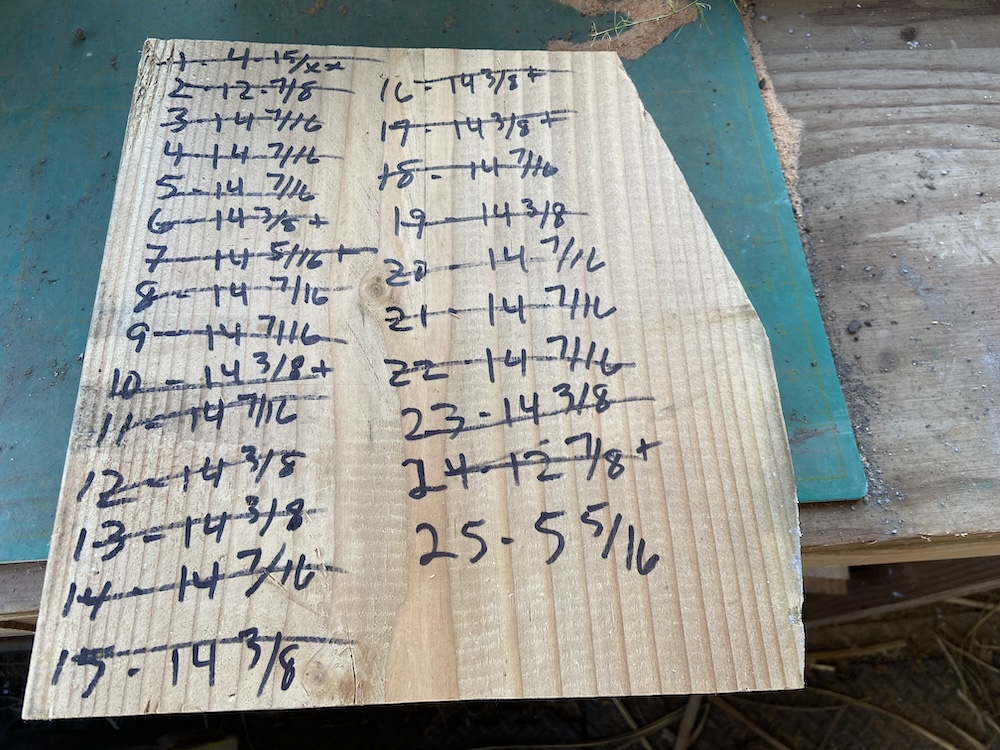 1 - 4 - 15/xx
2 - 12 - 7/8
3 - 14 7/16
4 - 14 7/16
5 - 14 7/16
6 - 14 3/8 +
7 - 14 5/16 +
8 - 14 7/16
9 - 14 7/16
10 - 14 3/8 +
11 - 14 7/16
12 - 14 3/8
13 - 14 3/8
14 - 14 7/16
15 - 14 3/8
16 - 14 3/8 +
17 - 14 3/8 +
18 - 14 7/16
19 - 14 3/8
20 - 14 7/16
21 - 14 7/16
22 - 14 7/16
23 - 14 3/8
24 - 12 7/8 +
25 - 5 5/16